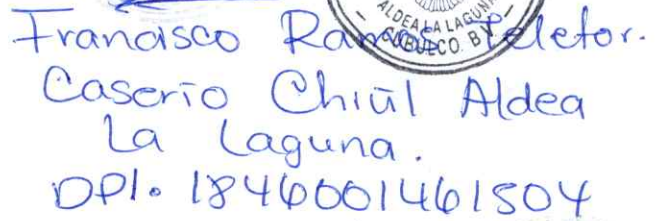 ALDEA LA LAGUNA
CUBULCO. B.V.
Francisco Ramos Teletor.
Caserio Chiúl Aldea
La Laguna.
DPI. 1846001461504